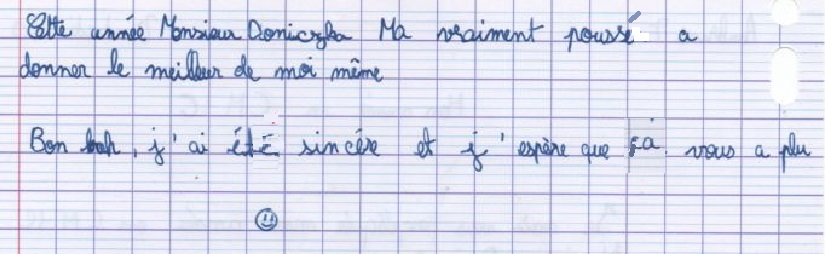 Cette année Monsieur Doniczka Ma vraiment poussé a
donner le meilleur de moi même
Bon bah, j'ai été sincère et j'espère que ça vous a plu